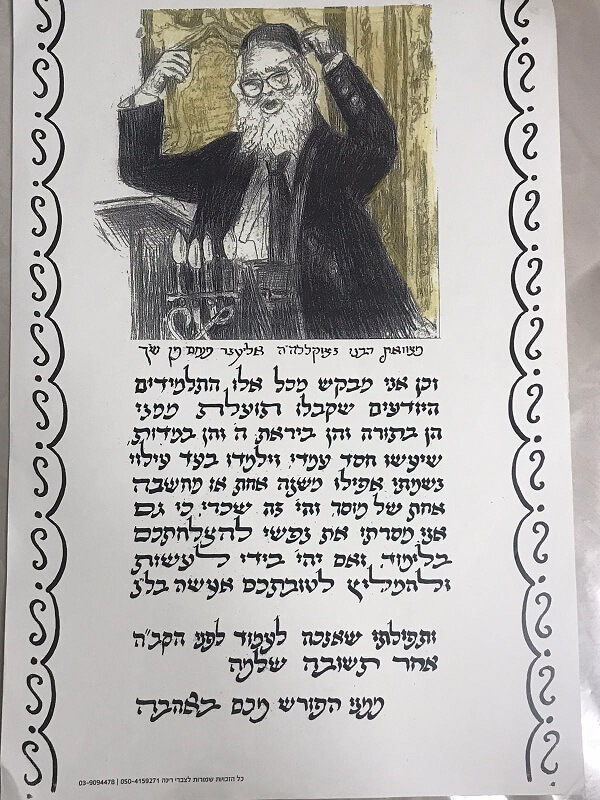 מצוואת רבנו זצוקללה"ה אלעזר מנחם מן שך
וכן אני מבקש מכל אלו, התלמידים
היודעים שקבלו תועלת ממני
הן בתורה והן ביראת ה' והן במדות,
שיעשו חסד עמדי וילמדו בעד עילוי
נשמתי אפילו משנה אחת או מחשבה
אחת של מוסר והי' זה שכרי, כי גם
אני מסרתי את נפשי להצלחתכם
בלימוד, ואם יהי' בידי לעשות
ולהמליץ לטובתכם אעשה בל"נ
ותפילתי שאזכה לעמוד לפני הקב"ה
אחר תשובה שלמה
ממני הפורש מכם באהבה
כל הזכויות שמורות לצברי רינה 050-4159271 | 03-9094478